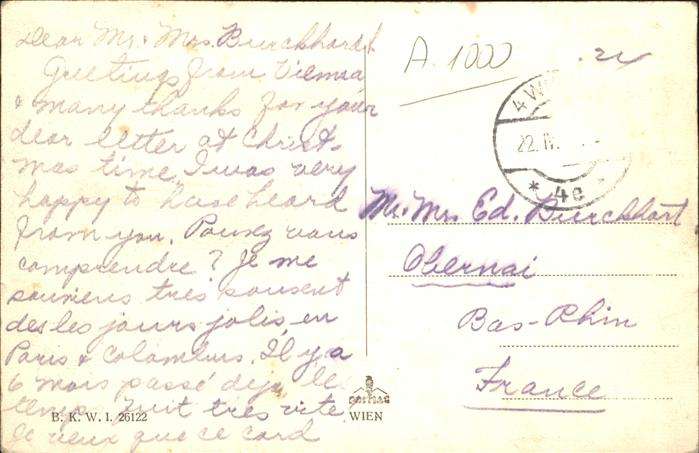 Dear Mr. & Mrs. Burckhardt
Greetings from Vienna
& many thanks for your
dear letter at Christ-
mas time, I was very
happy to have heard
from you. Pouvez vous
comprendre? Je me
souviens très souvent
des les jours jolis en
Paris & Colombus. Il y a
6 mois passé deja, le
temp fuit très vite
Je veux que ce card
B. K. W. I. 26122
WIEN
A. 1000
4 W
22. IV.
* 4c
Mr. Mrs. Ed. Burckhart
Obernai
Bas-Rhin
France